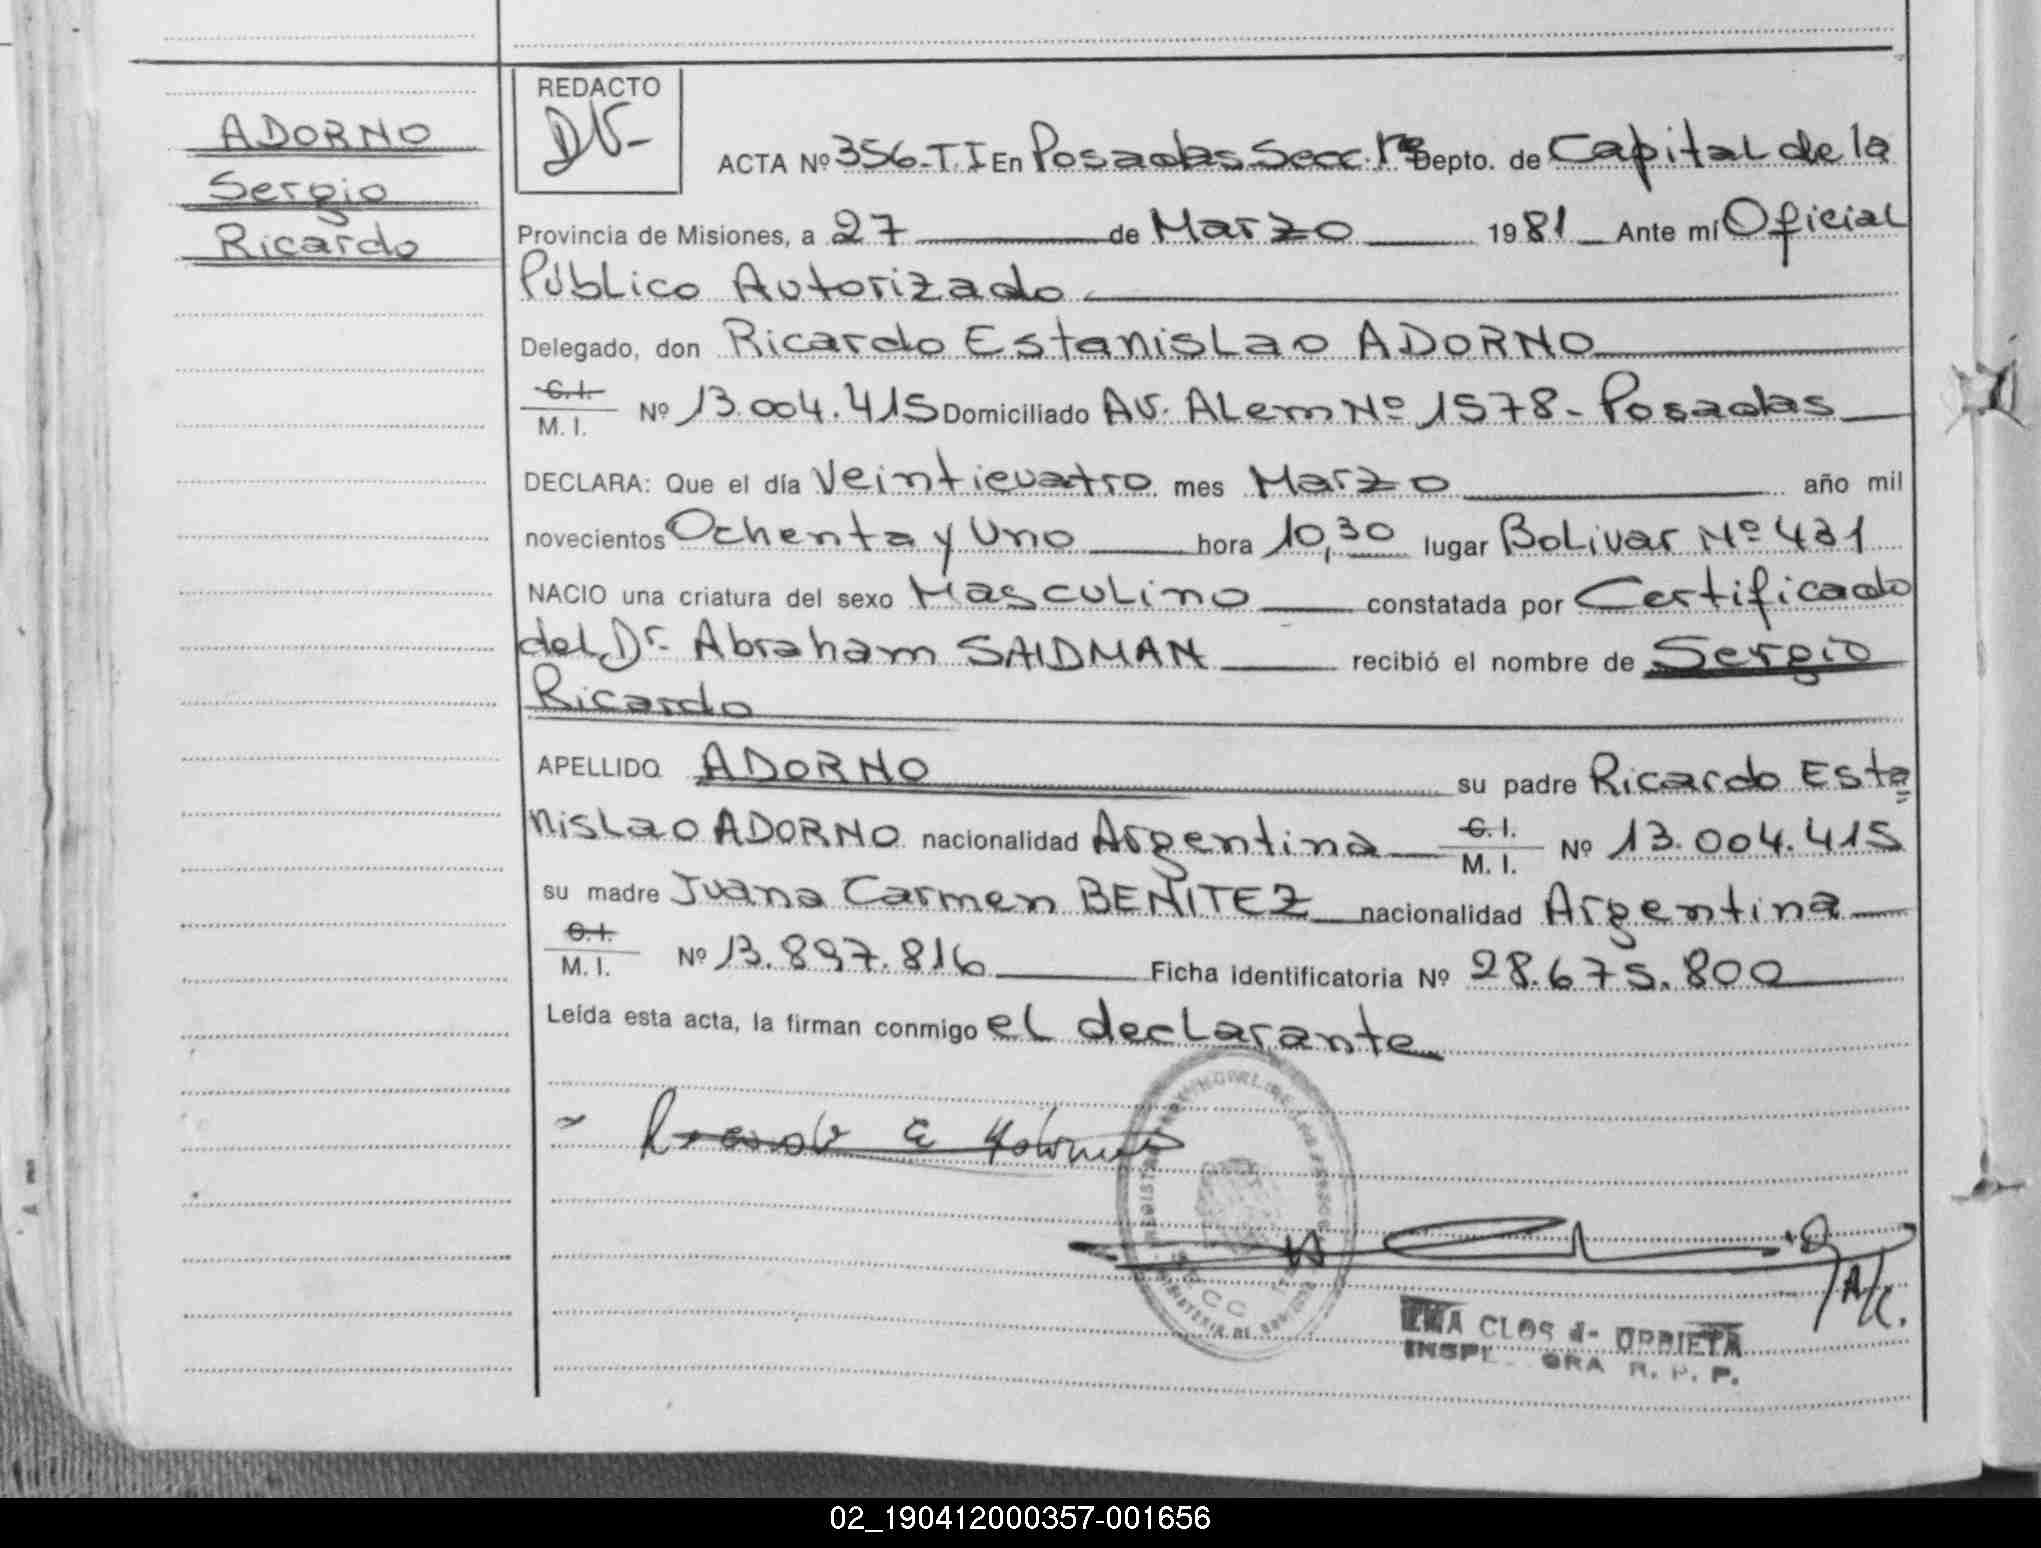 ADORNO
Sergio
Ricardo
REDACTO
DV-
ACTA Nº 356-T.I En Posadas Secc. 1ra Depto. de Capital de la
Provincia de Misiones, a 27 de Marzo 1981 Ante mí Oficial
Público Autorizado
Delegado, don Ricardo Estanislao ADORNO
C.I.
M. I. Nº 13.004.415 Domiciliado Av. Alem Nº 1578 - Posadas
DECLARA: Que el día Veinticuatro mes Marzo año mil
novecientos Ochenta y Uno hora 10,30 lugar Bolivar Nº 431
NACIO una criatura del sexo Masculino constatada por Certificado
del Dr. Abraham SAIDMAN recibió el nombre de Sergio
Ricardo
APELLIDO ADORNO su padre Ricardo Esta
nislao ADORNO nacionalidad Argentina C. I. M. I. Nº 13.004.415
su madre Juana Carmen BENITEZ nacionalidad Argentina
C. I.
M. I. Nº 13.897.816 Ficha identificatoria Nº 28.675.800
Leída esta acta, la firman conmigo el declarante
Ricardo E Adorno
CLOS de URRIETA
R. P. P.
02_190412000357-001656